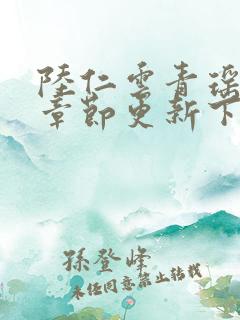 陸仁雲青瑶
章節更新下
孫登峰
未经同意禁止转载